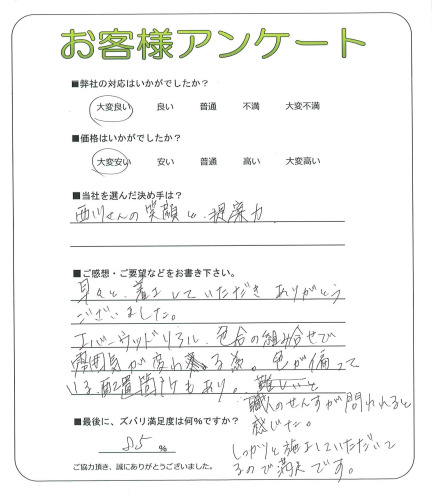 お客様アンケート
■弊社の対応はいかがでしたか?
大変良い 良い 普通 不満 大変不満
■価格はいかがでしたか?
大変安い 安い 普通 高い 大変高い
■当社を選んだ決め手は?
西川さんの笑顔と、提案力
■ご感想・ご要望などをお書き下さい。
早々と、着工していただき ありがとう
ございました。
エバーウッドリアル、色合の組み合せで
雰囲気が変わる為。色が偏って
いる配置箇所もあり。難しいと
職人のせんすが問われると
感じた。
しっかりと施工していただいて
るので満足です。
■最後に、ズバリ満足度は何%ですか?
85 %
ご協力頂き、誠にありがとうございました。